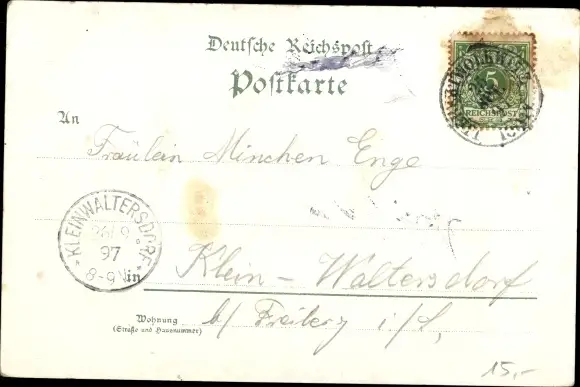 Deutsche Reichspost
Postkarte
5
REICHSPOST
An
Fräulein Minchen Enge
KLEINWALTERSDORF
97
8-9 N
in
Klein - Waltersdorf
b/ Freiberg i./S,
Wohnung
(Straße und Hausnummer)
15,-